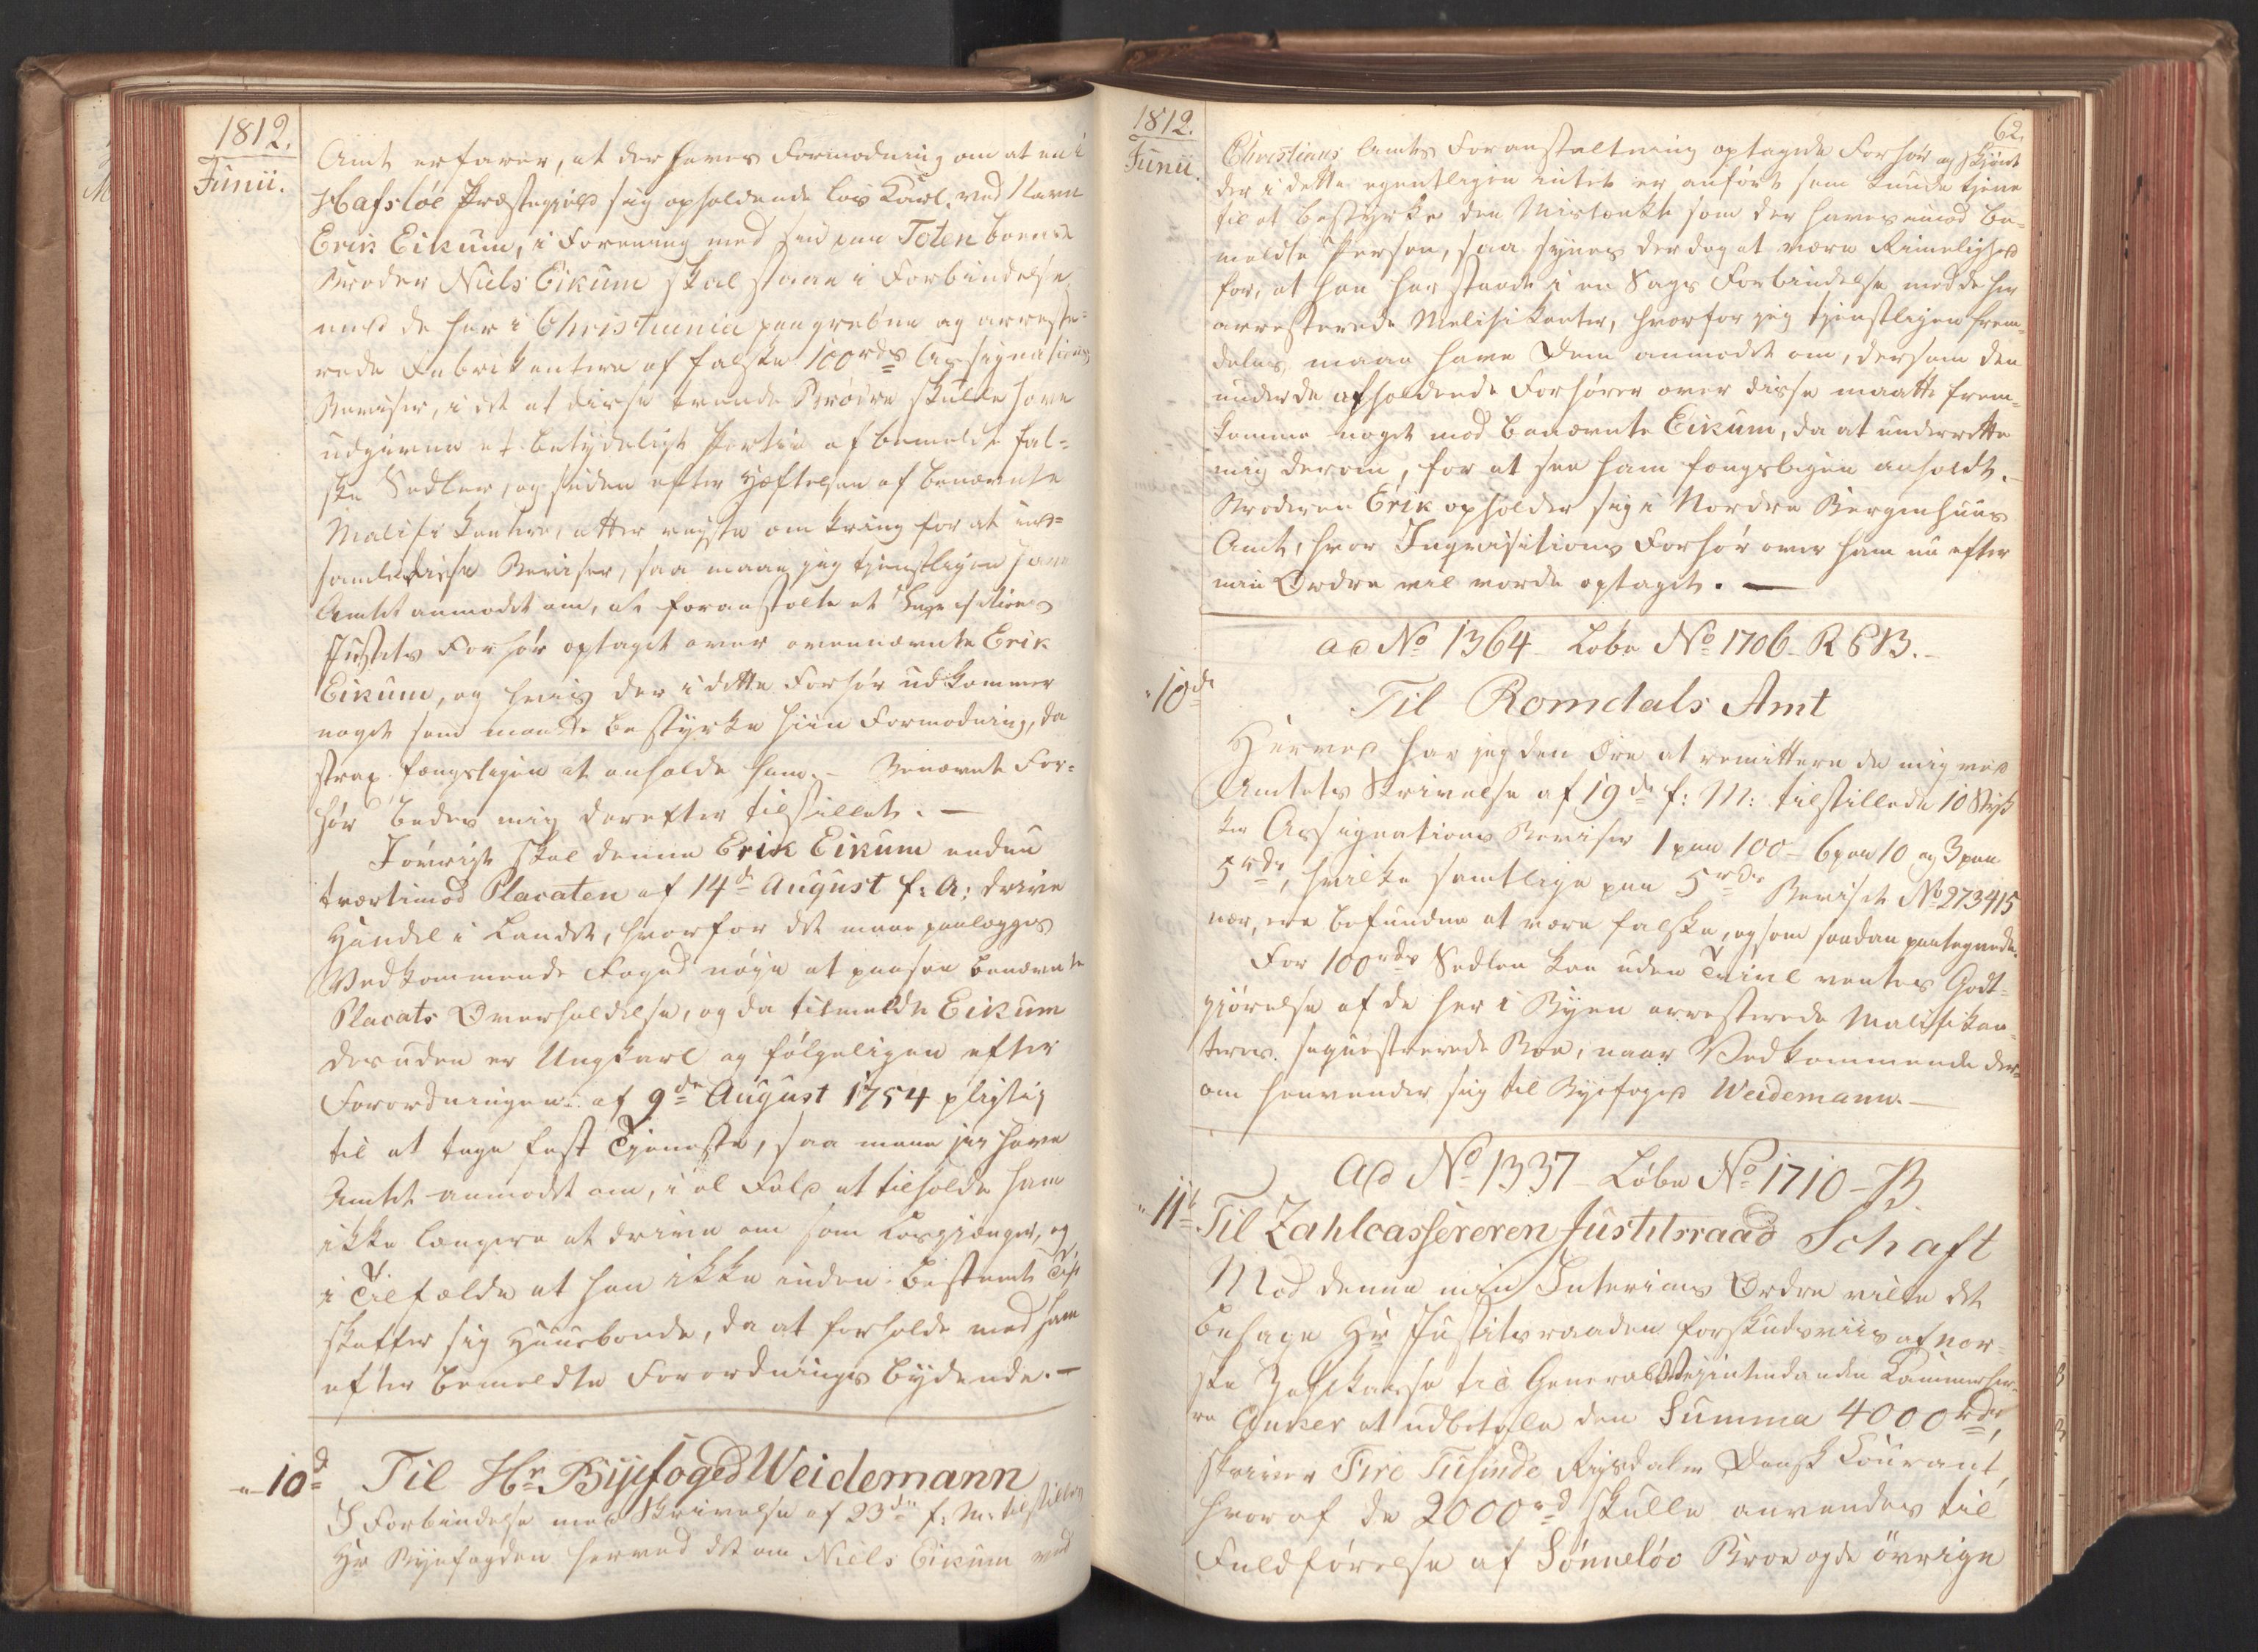 1812.
Junii.
Amt erfarer, at der haves Formodning om at en i
Hafsløe Præstegield sig opholdende løs Karl, ved Navn
Erik Eikum, i Forening med sin paa Toten boende
Broder Niels Eikum skal staae i Forbindelse
med de her i Christiania paagrebne og arreste-
rede Fabrikantere af falske 100 rdr Assignations
Beviser, i det at disse tvende Brødre skulle have
udgivet et betydeligt Partie af bemeldte fal-
ske Sedler, og siden efter Hæftelsen af benævnte
Malifikantere, atter reyste omkring for at ind-
samle disse Beviser, saa maae jeg tjenstligen have
Amtet anmodet om, at foranstalte et Inqvisitions
Justits Forhør optaget over ovennævnte Erik
Eikum, og hvis der i dette Forhør udkommer
noget som maatte bestyrke hiin Formodning, da
strax fængsligen at anholde ham. – Benævnte For-
hør bedes mig derefter tilstillet. –
Iøvrigt skal denne Erik Eikum endnu
tvertimod Placaten af 14d August f: A: drive
Handel i Landet, hvorfor det maae paalægges
Vedkommende Foged nøye at paasee benævnte
Placats Overholdelse, og da tilmeldte Eikum
desuden er Ungkarl og følgeligen efter
Forordningen af 9de August 1754 pligtig
til at tage fast Tjeneste, saa maae jeg have
Amtet anmodet om, i al Fald at tilholde ham
ikke længere at drive om som Løsgjænger, og
i Tilfælde at han ikke inden bestemt Tid
skaffer sig Huusbonde, da at forholde med ham
efter bemeldte Forordnings Bydende. –
" 10d Til Hr. Byefoged Weidemann
I Forbindelse med Skrivelse af 23de f: M: tilstilles
Hr Byefogden herved det om Niels Eikum ved
1812.
Junii.
62.
Christians Amts Foranstaltning optagede Forhør og skjønt
der i dette egentligen intet er anført som kunde tjene
til at bestyrke den Mistanke som der haves imod be-
meldte Person, saa synes der dog at være Rimelighed
for, at han har staaet i en Slags Forbindelse med de her
arresterede Malifikanter, hvorfor jeg tjenstligen frem-
deles maae have Dem anmodet om, dersom den
under de afholdende Forhører over disse maatte frem-
komme noget mod benævnte Eikum, da at underrette
mig derom, for at see ham fængsligen anholdt. –
Broderen Erik opholder sig i Nordre Bergenhuus
Amt, hvor Inqvisitions Forhør over ham nu efter
min Ordre vil vorde optaget. –
ad No 1364 – Løbe No 1706 – R C B. –
" 10de
Til Romdals Amt
Herved har jeg den Ære at remittere de mig ved
Amtets Skrivelse af 19de f: M: tilstillede 10 Styk-
ker Assignations Beviser 1 paa 100 – 6 paa 10 og 3 paa
5 rdr, hvilke samtlige paa 5 rdr Beviset No 273415
nær, ere befundne at være falske, og som saadan paategnede.
For 100 rdr Sedlen kan uden Tvivl ventes Godt-
gjørelse af de her i Byen arresterede Malifikan-
teres seqvestrerede Boe, naar Vedkommende der-
om henvender sig til Byefoged Weidemann. –
Ad No 1337 – Løbe No 1710 – B.
" 11t
Til Zahlcassereren Justitsraad Schaft
Mod denne min Interims Ordre vilde det
behage Hr Justitsraaden forskudsviis af nor-
ske Zahlkasse til General Veyintendanten Kammerher-
re Anker at udbetale den Summa 4000 rdr,
skriver Fire Tusinde Rigsdaler Dansk Courant,
hvoraf de 2000 rd skulle anvendes til
Fuldførelse af Sønneløv Broe og de øvrige